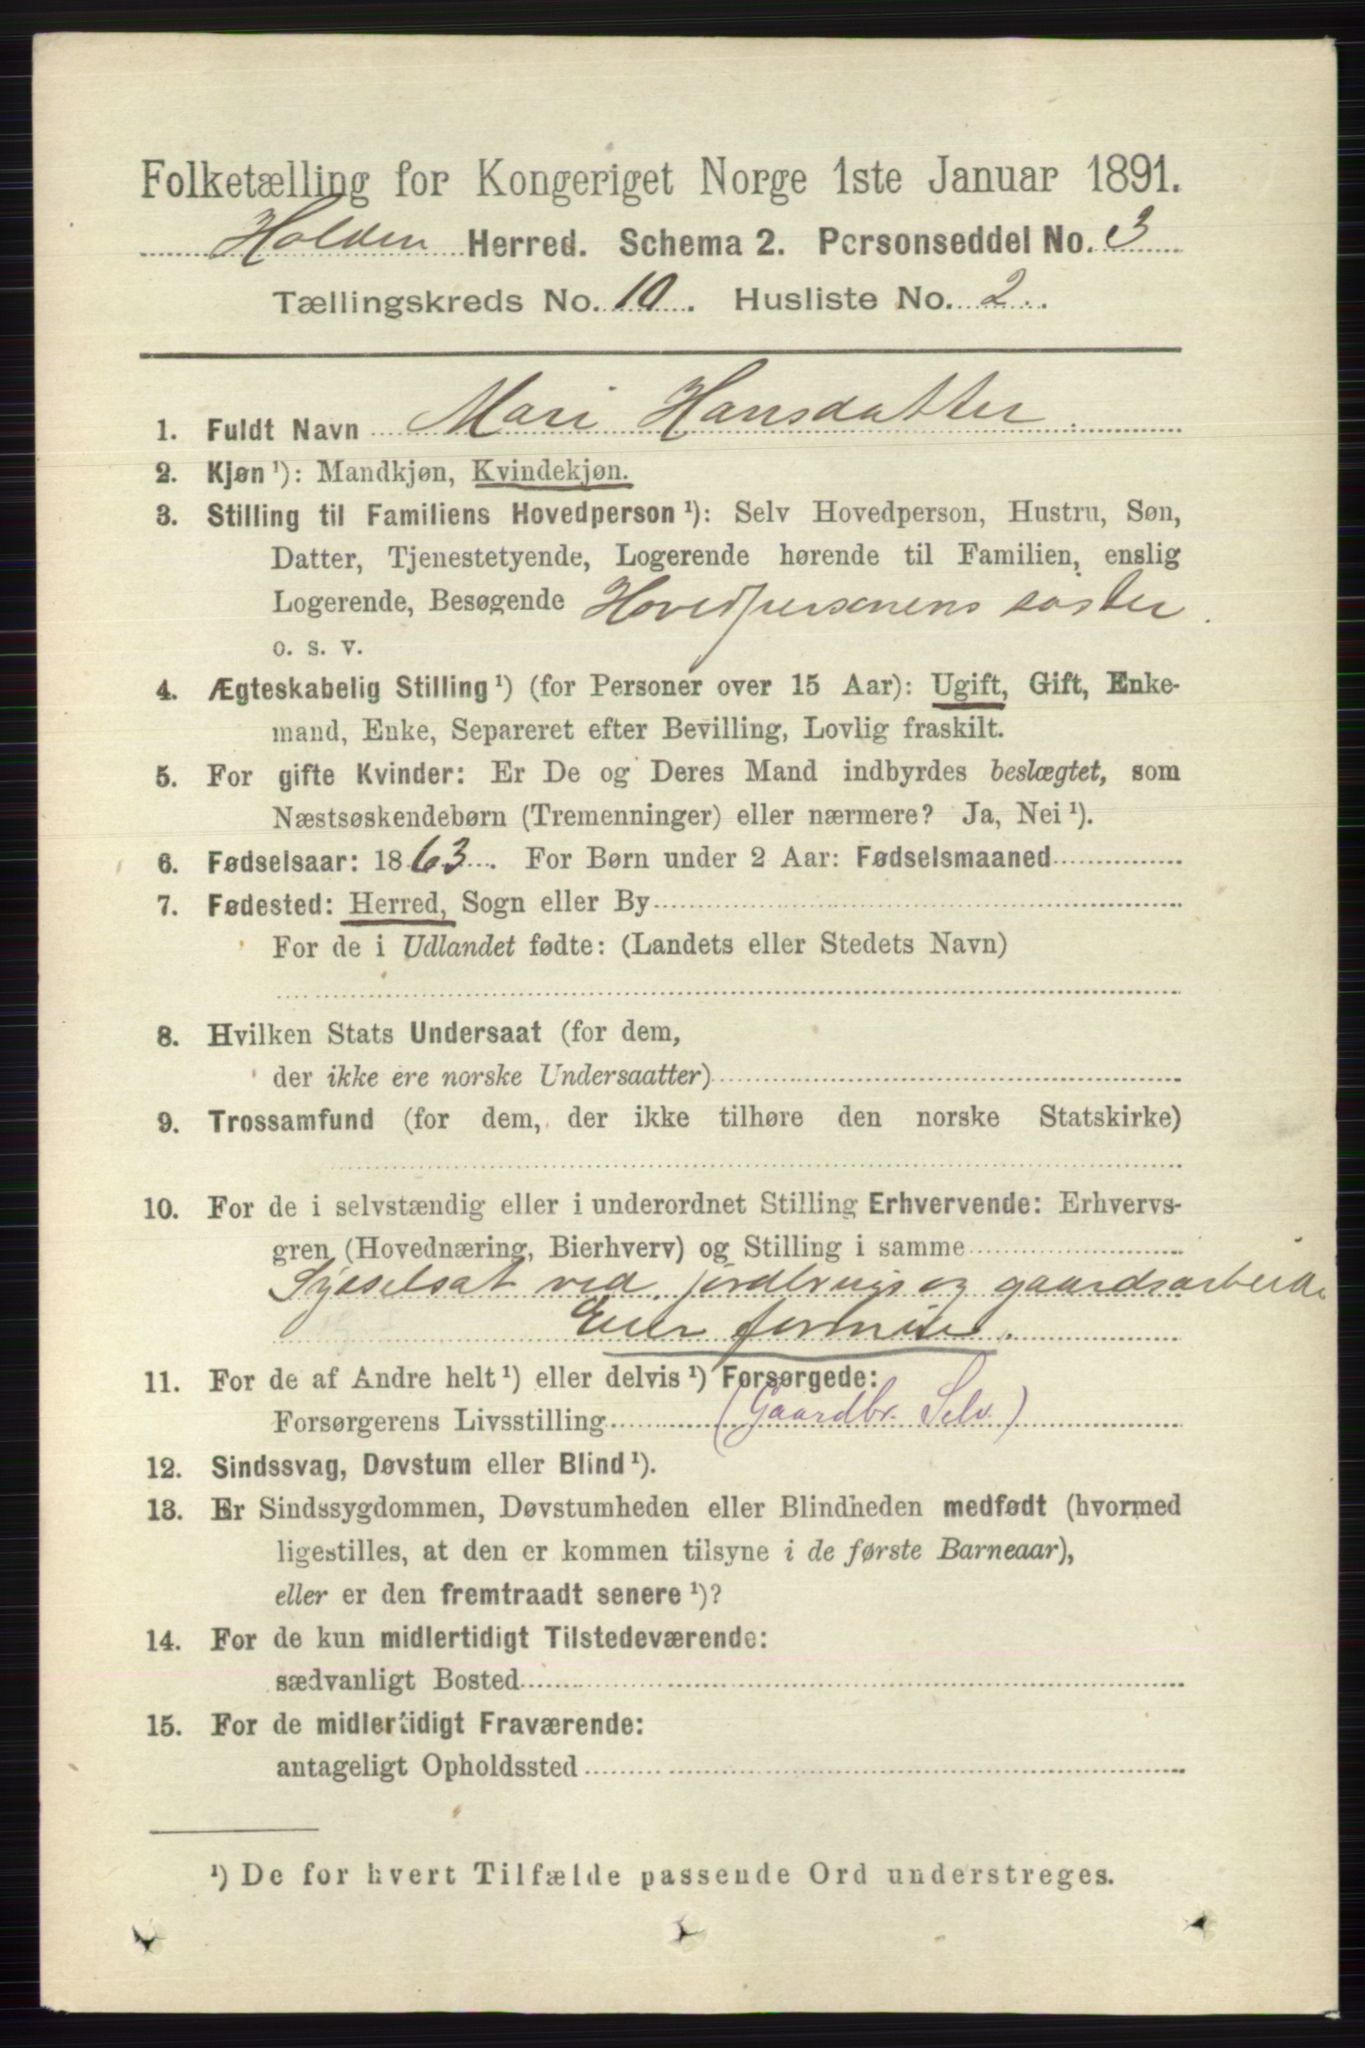 Folketælling for Kongeriget Norge 1ste Januar 1891.
Holden Herred. Schema 2. Personseddel No. 3
Tællingskreds No. 10. Husliste No. 2.
1. Fuldt Navn Mari Hansdatter.
2. Kjøn¹): Mandkjøn, Kvindekjøn.
3. Stilling til Familiens Hovedperson¹): Selv Hovedperson, Hustru, Søn,
Datter, Tjenestetyende, Logerende hørende til Familien, enslig
Logerende, Besøgende Hovedpersonens søster.
o. s. v.
4. Ægteskabelig Stilling¹) (for Personer over 15 Aar): Ugift, Gift, Enke-
mand, Enke, Separeret efter Bevilling, Lovlig fraskilt.
5. For gifte Kvinder: Er De og Deres Mand indbyrdes beslægtet, som
Næstsøskendebørn (Tremenninger) eller nærmere? Ja, Nei¹).
6. Fødselsaar: 1863. For Børn under 2 Aar: Fødselsmaaned
7. Fødested: Herred, Sogn eller By
For de i Udlandet fødte: (Landets eller Stedets Navn)
8. Hvilken Stats Undersaat (for dem,
der ikke ere norske Undersaatter)
9. Trossamfund (for dem, der ikke tilhøre den norske Statskirke)
10. For de i selvstændig eller i underordnet Stilling Erhvervende: Erhvervs-
gren (Hovednæring, Bierhverv) og Stilling i samme
Sysselsat ved jordbrugs og gaardsarbeide
Eier formue.
11. For de af Andre helt¹) eller delvis¹) Forsørgede:
Forsørgerens Livsstilling (Gaardbr. Selv)
12. Sindssvag, Døvstum eller Blind¹).
13. Er Sindssygdommen, Døvstumheden eller Blindheden medfødt (hvormed
ligestilles, at den er kommen tilsyne i de første Barneaar),
eller er den fremtraadt senere¹)?
14. For de kun midlertidigt Tilstedeværende:
sædvanligt Bosted
15. For de midlertidigt Fraværende:
antageligt Opholdssted
¹) De for hvert Tilfælde passende Ord understreges.